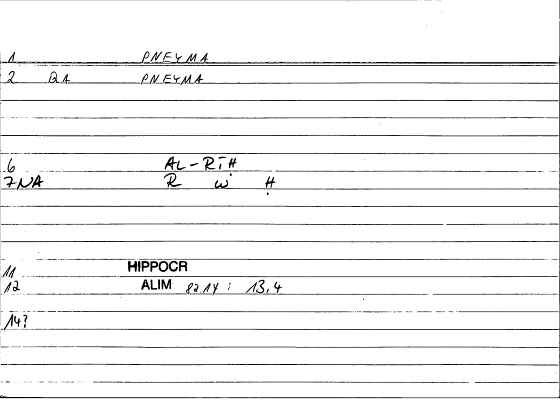 1 PNEYMA
2 QA PNEYMA
6 AL-RĪḤ
7NA R W Ḥ
11 HIPPOCR
12 ALIM 82.14 : 13,4
14?